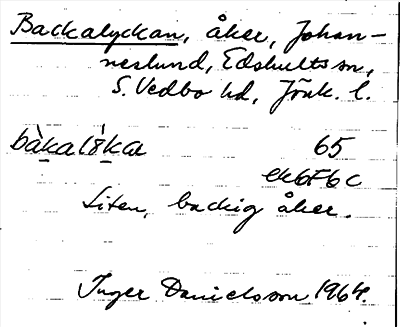 Backalyckan, åker, Johan-
neslund, Edshults sn,
S. Vedbo hd, Jönk. l.
bàkalỳkan 65
ek6F6c
Liten, backig åker.
Inger Danielsson 1964.